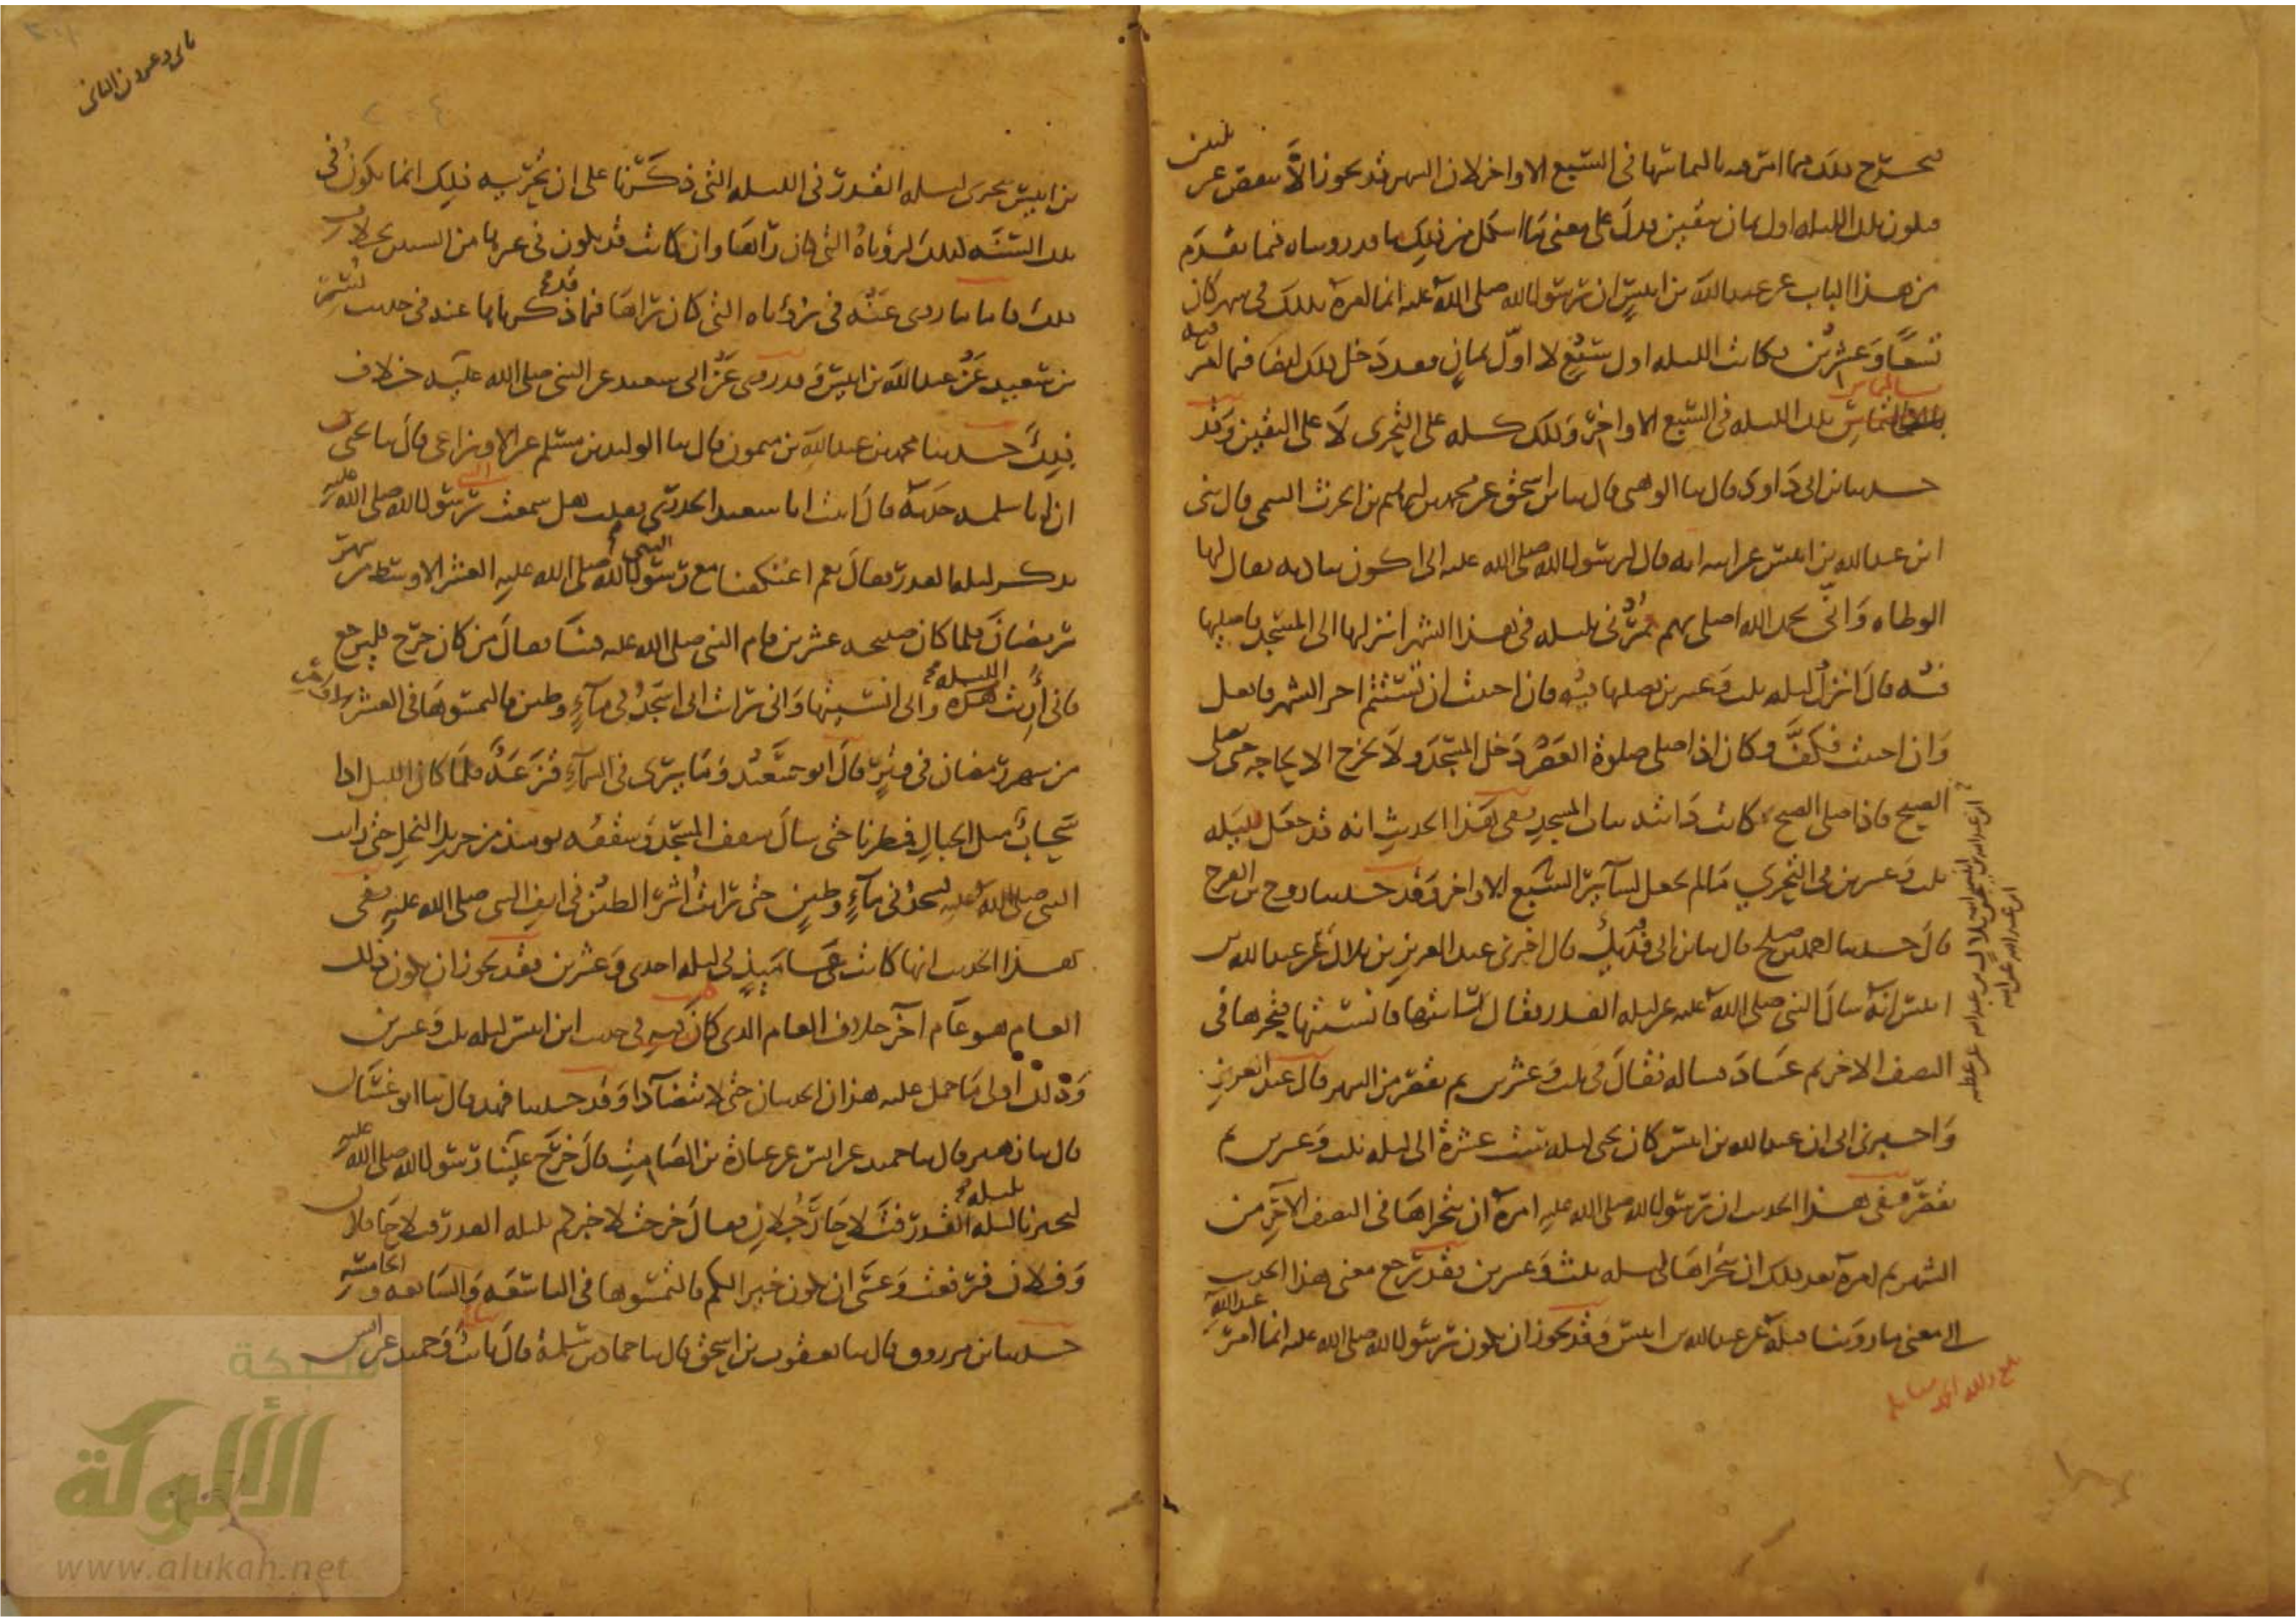 فيخرج ذلك مما امر به بالتماسها فى السبع الاواخر لان الشهر قد يجوز الا ينقص عن ثلثين
فيكون تلك الليله اول ثمان بقين يدل على معنى ما اشكل من ذلك ما قد رويناه فيما تقدم
من هذا الباب عن عبدالله بن انيس ان رسول الله صلى الله عليه انما امره بذلك فى شهر كان
تسعا وعشرين فكانت الليله اول سبع لا اول ثمان فقد دخل ذلك ايضا فيما امر فيه
بالتماس تلك الليله فى السبع الاواخر وذلك كله على التحرى لا على اليقين وقد
حدثنا ابن ابى داود قال ثنا الوهبى قال ثنا ابن اسحق عن محمد بن ابراهيم بن الحرث التيمى قال ثنى
ابن عبدالله بن انيس عن ابيه انه قال لرسول الله صلى الله عليه انى اكون بباديه يقال لها
الوطاه وانى بحمد الله اصلى بهم فمرنى بليله فى هذا الشهر انزلها الى المسجد فاصليها
فيه قال انزل ليله ثلث وعشرين فصلها فيه فان احببت ان تستتم اخر الشهر فافعل
وان احببت فكف وكان اذا صلى صلوة العصر دخل المسجد ولا يخرج الا لحاجه حتى يصلى
الصبح فاذا صلى الصبح كانت دابته بباب المسجد ففى هذا الحديث انه قد جعل لليله
ثلث وعشرين فى التحرى ما لم يجعل لسائر السبع الاواخر وقد حدثنا روح بن الفرج
قال حدثنا احمد بن صلح قال ثنا ابن ابى فديك قال اخبرنى عبد العزيز بن بلال عن عبدالله بن
انيس انه سال النبى صلى الله عليه عن ليله القدر فقال انى رايتها فانسيتها فتحرها فى
النصف الاخر ثم عاد فساله فقال فى ثلث وعشرين ثم يقصر من الشهر قال عبد العزيز
واخبرنى ابى ان عبدالله بن انيس كان يحيى ليله ست عشرة الى ليله ثلث وعشرين ثم
يقصر ففى هذا الحديث ان رسول الله صلى الله عليه امره ان يتحراها فى النصف الاخر من
الشهر ثم امره بعد ذلك ان يتحراها ليله ثلث وعشرين فقد رجع معنى هذا الحديث
الى معنى ما روينا قبله عن عبدالله بن انيس وقد يجوز ان يكون رسول الله صلى الله عليه انما امر عبدالله
بن انيس بتحرى ليله القدر فى الليله التى ذكرنا على ان تحريه ذلك انما يكون فى
تلك السنه لذلك لرؤياه التى كان راها وان كانت قد يكون فى غيرها من السنين بخلاف
ذلك فاما ما روى عنه فى رؤياه التى كان راها فما قد ذكرناها عنه فى حديث بسر
بن سعيد عن عبدالله بن انيس وقد روى عن ابى سعيد عن النبى صلى الله عليه خلاف
ذلك حدثنا محمد بن عبدالله بن ميمون قال ثنا الوليد بن مسلم عن الاوزاعى قال ثنا يحيى
ان ابا سلمه حدثه قال اتيت ابا سعيد الخدرى فقلت هل سمعت رسول الله صلى الله عليه
يذكر ليله القدر فقال نعم اعتكفنا مع رسول الله صلى الله عليه العشر الاوسط من شهر
رمضان فلما كان صبيحه عشرين قام النبى صلى الله عليه فينا فقال من كان خرج فليرجع
فانى اريت هذه الليله وانى انسيتها وانى رايت انى اسجد فى ماء وطين فالتمسوها فى العشر الاواخر
من شهر رمضان فى وتر قال ابو سعيد وما يرى فى السماء قزعه فلما كان الليل اذا
سحاب مثل الجبال فمطرنا حتى سال سقف المسجد وسقفه يومئذ من جريد النخل حتى رايت
النبى صلى الله عليه يسجد فى ماء وطين حتى رايت اثر الطين فى انف النبى صلى الله عليه ففى
هذا الحديث انها كانت عامئذ فى ليله احدى وعشرين فقد يجوز ان يكون ذلك
العام هو عام اخر خلاف العام الذى كان فيه فى حديث ابن انيس ليله ثلث وعشرين
وذلك اولى ما حمل عليه هذان الحديثان حتى لا يتضادا وقد حدثنا فهد قال ثنا ابو غسان
قال ثنا زهير قال ثنا حميد عن انس عن عبادة بن الصامت قال خرج علينا رسول الله صلى الله عليه
ليخبرنا بليله القدر فتلاحا رجلان فقال خرجت لاخبركم بليله القدر فتلاحا فلان
وفلان فرفعت وعسى ان يكون خيرا لكم فالتمسوها فى التاسعه والسابعه والخامسه
حدثنا ابن مرزوق قال ثنا يعقوب بن اسحق قال ثنا حماد بن سلمة قال ثنا ثابت وحميد عن انس
شبكة
الألوكة
www.alukah.net